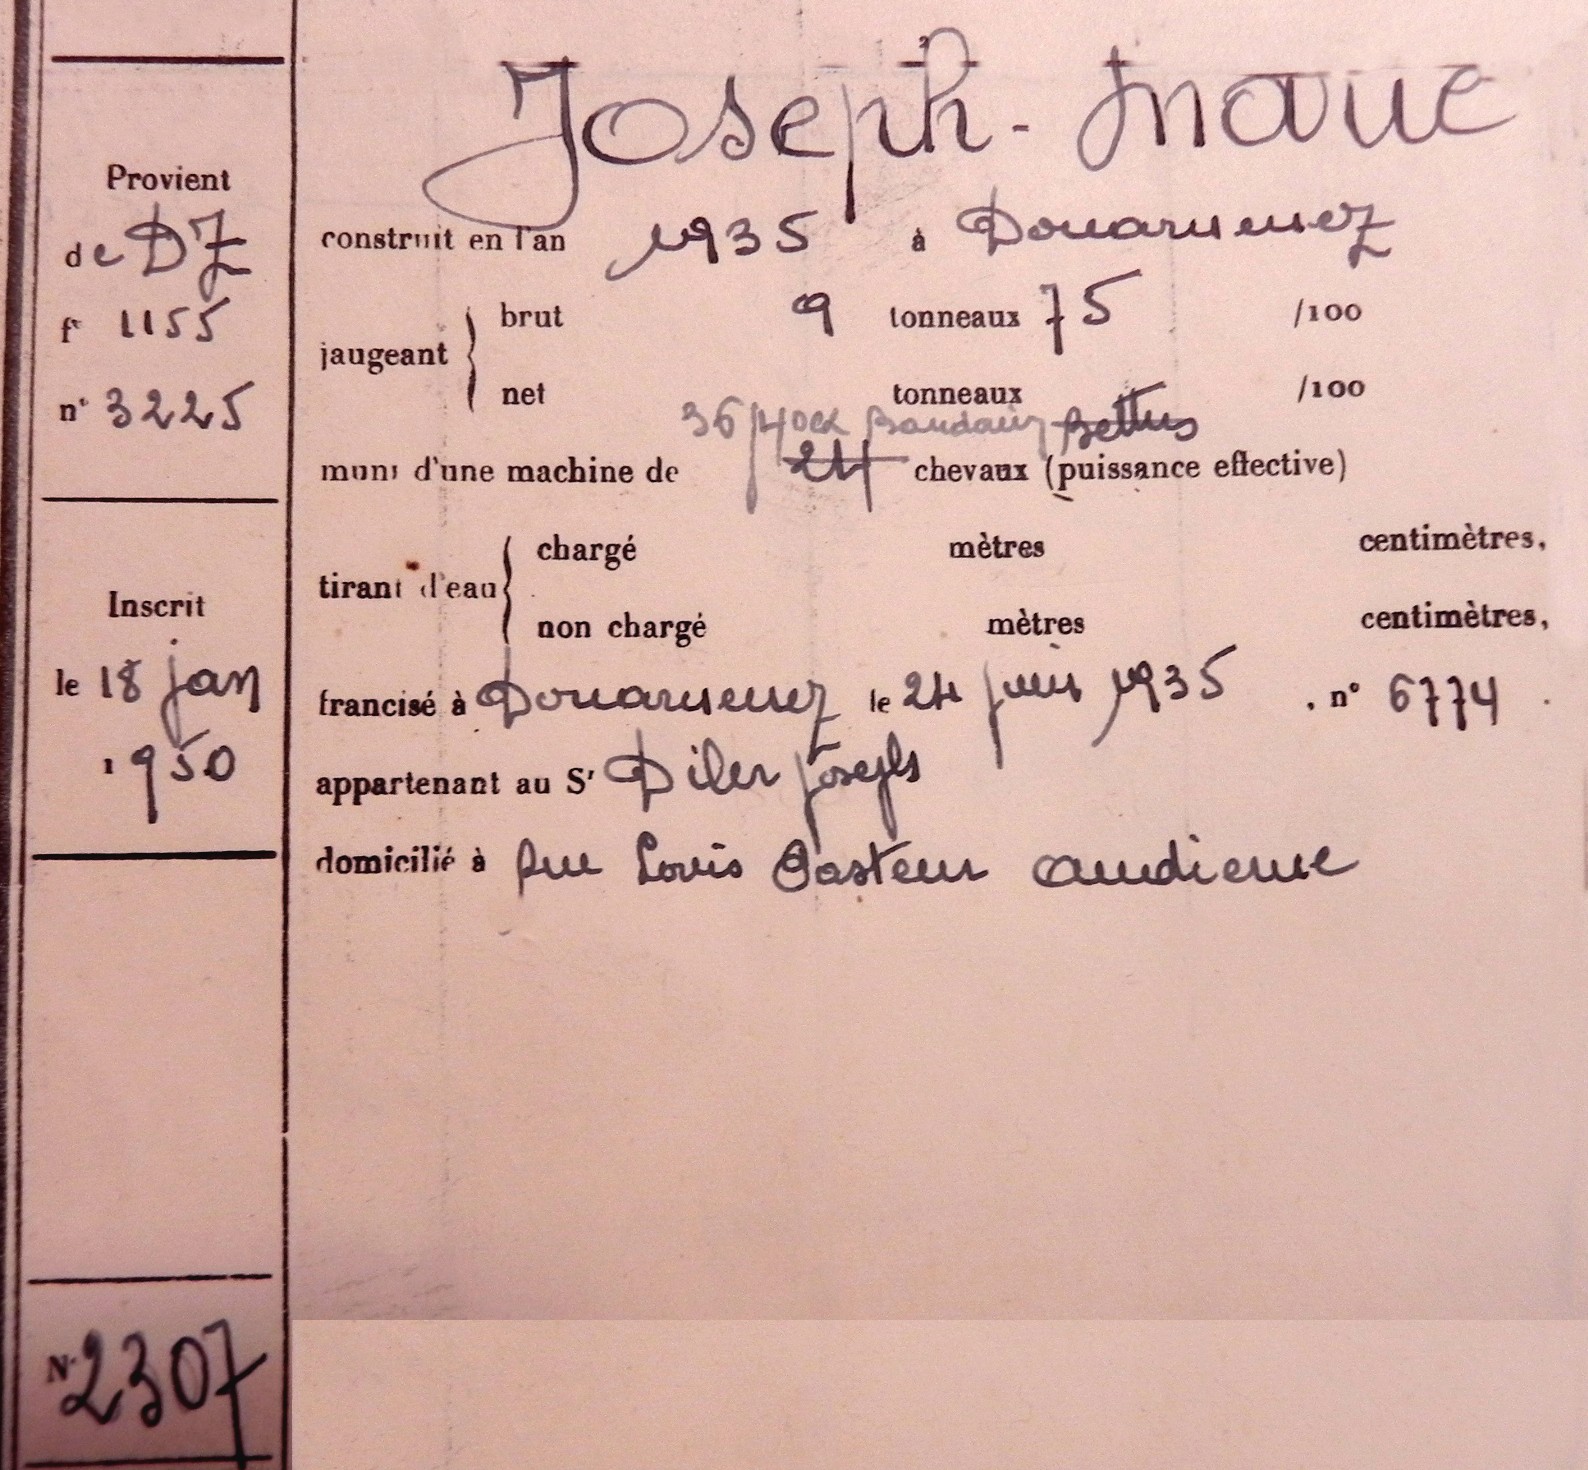 Provient
de DZ
f° 1155
n° 3225
Inscrit
le 18 jan
1950
N° 2307
Joseph-Marie
construit en l'an 1935 à Douarnenez
jaugeant brut 9 tonneaux 75 /100
net tonneaux /100
36/40 cx Baudouin Bettus
muni d'une machine de 24 chevaux (puissance effective)
tirant d'eau chargé mètres centimètres,
non chargé mètres centimètres,
francisé à Douarnenez le 24 juin 1935, n° 6774.
appartenant au Sr Diler Joseph
domicilié à Rue Louis Pasteur Audierne